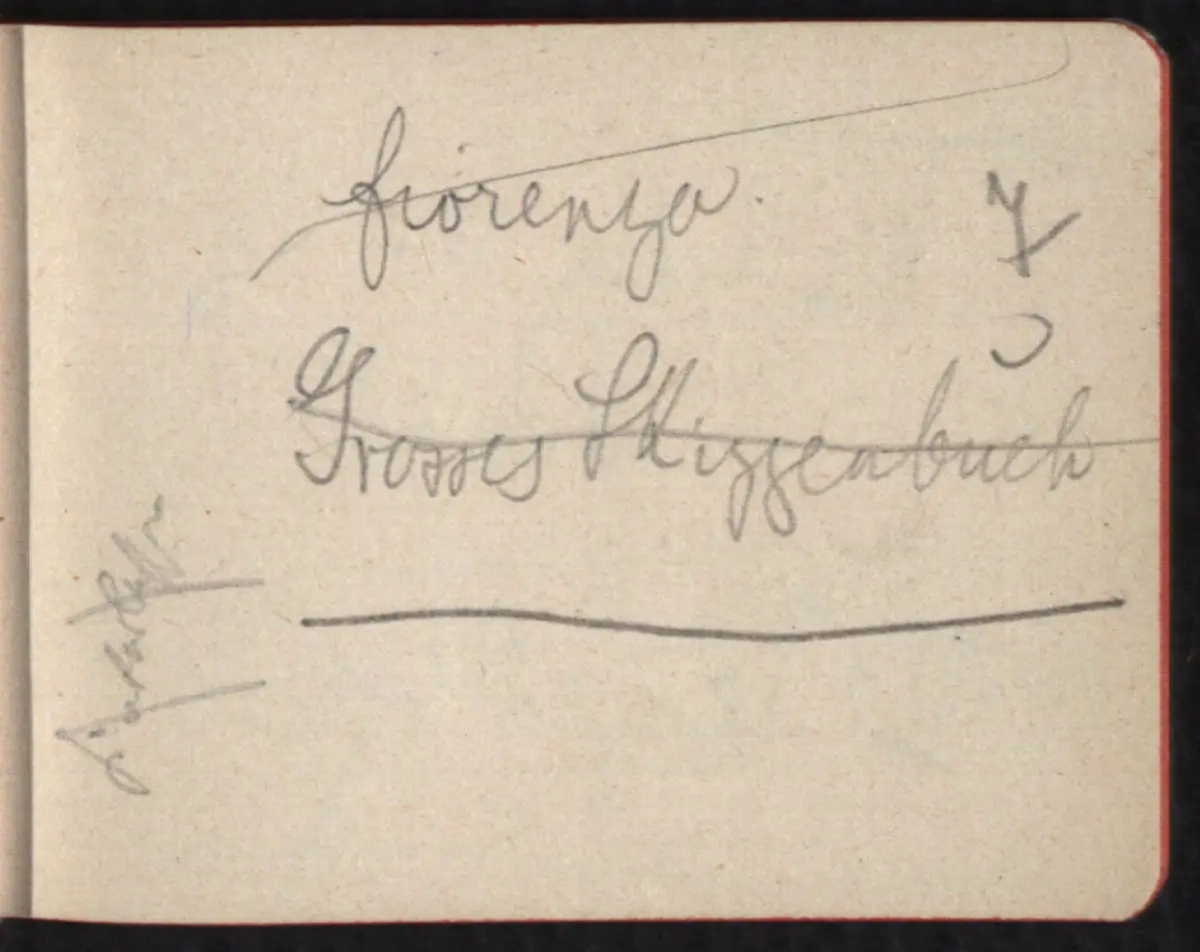 fiorenza.
Grosses Skizzenbuch